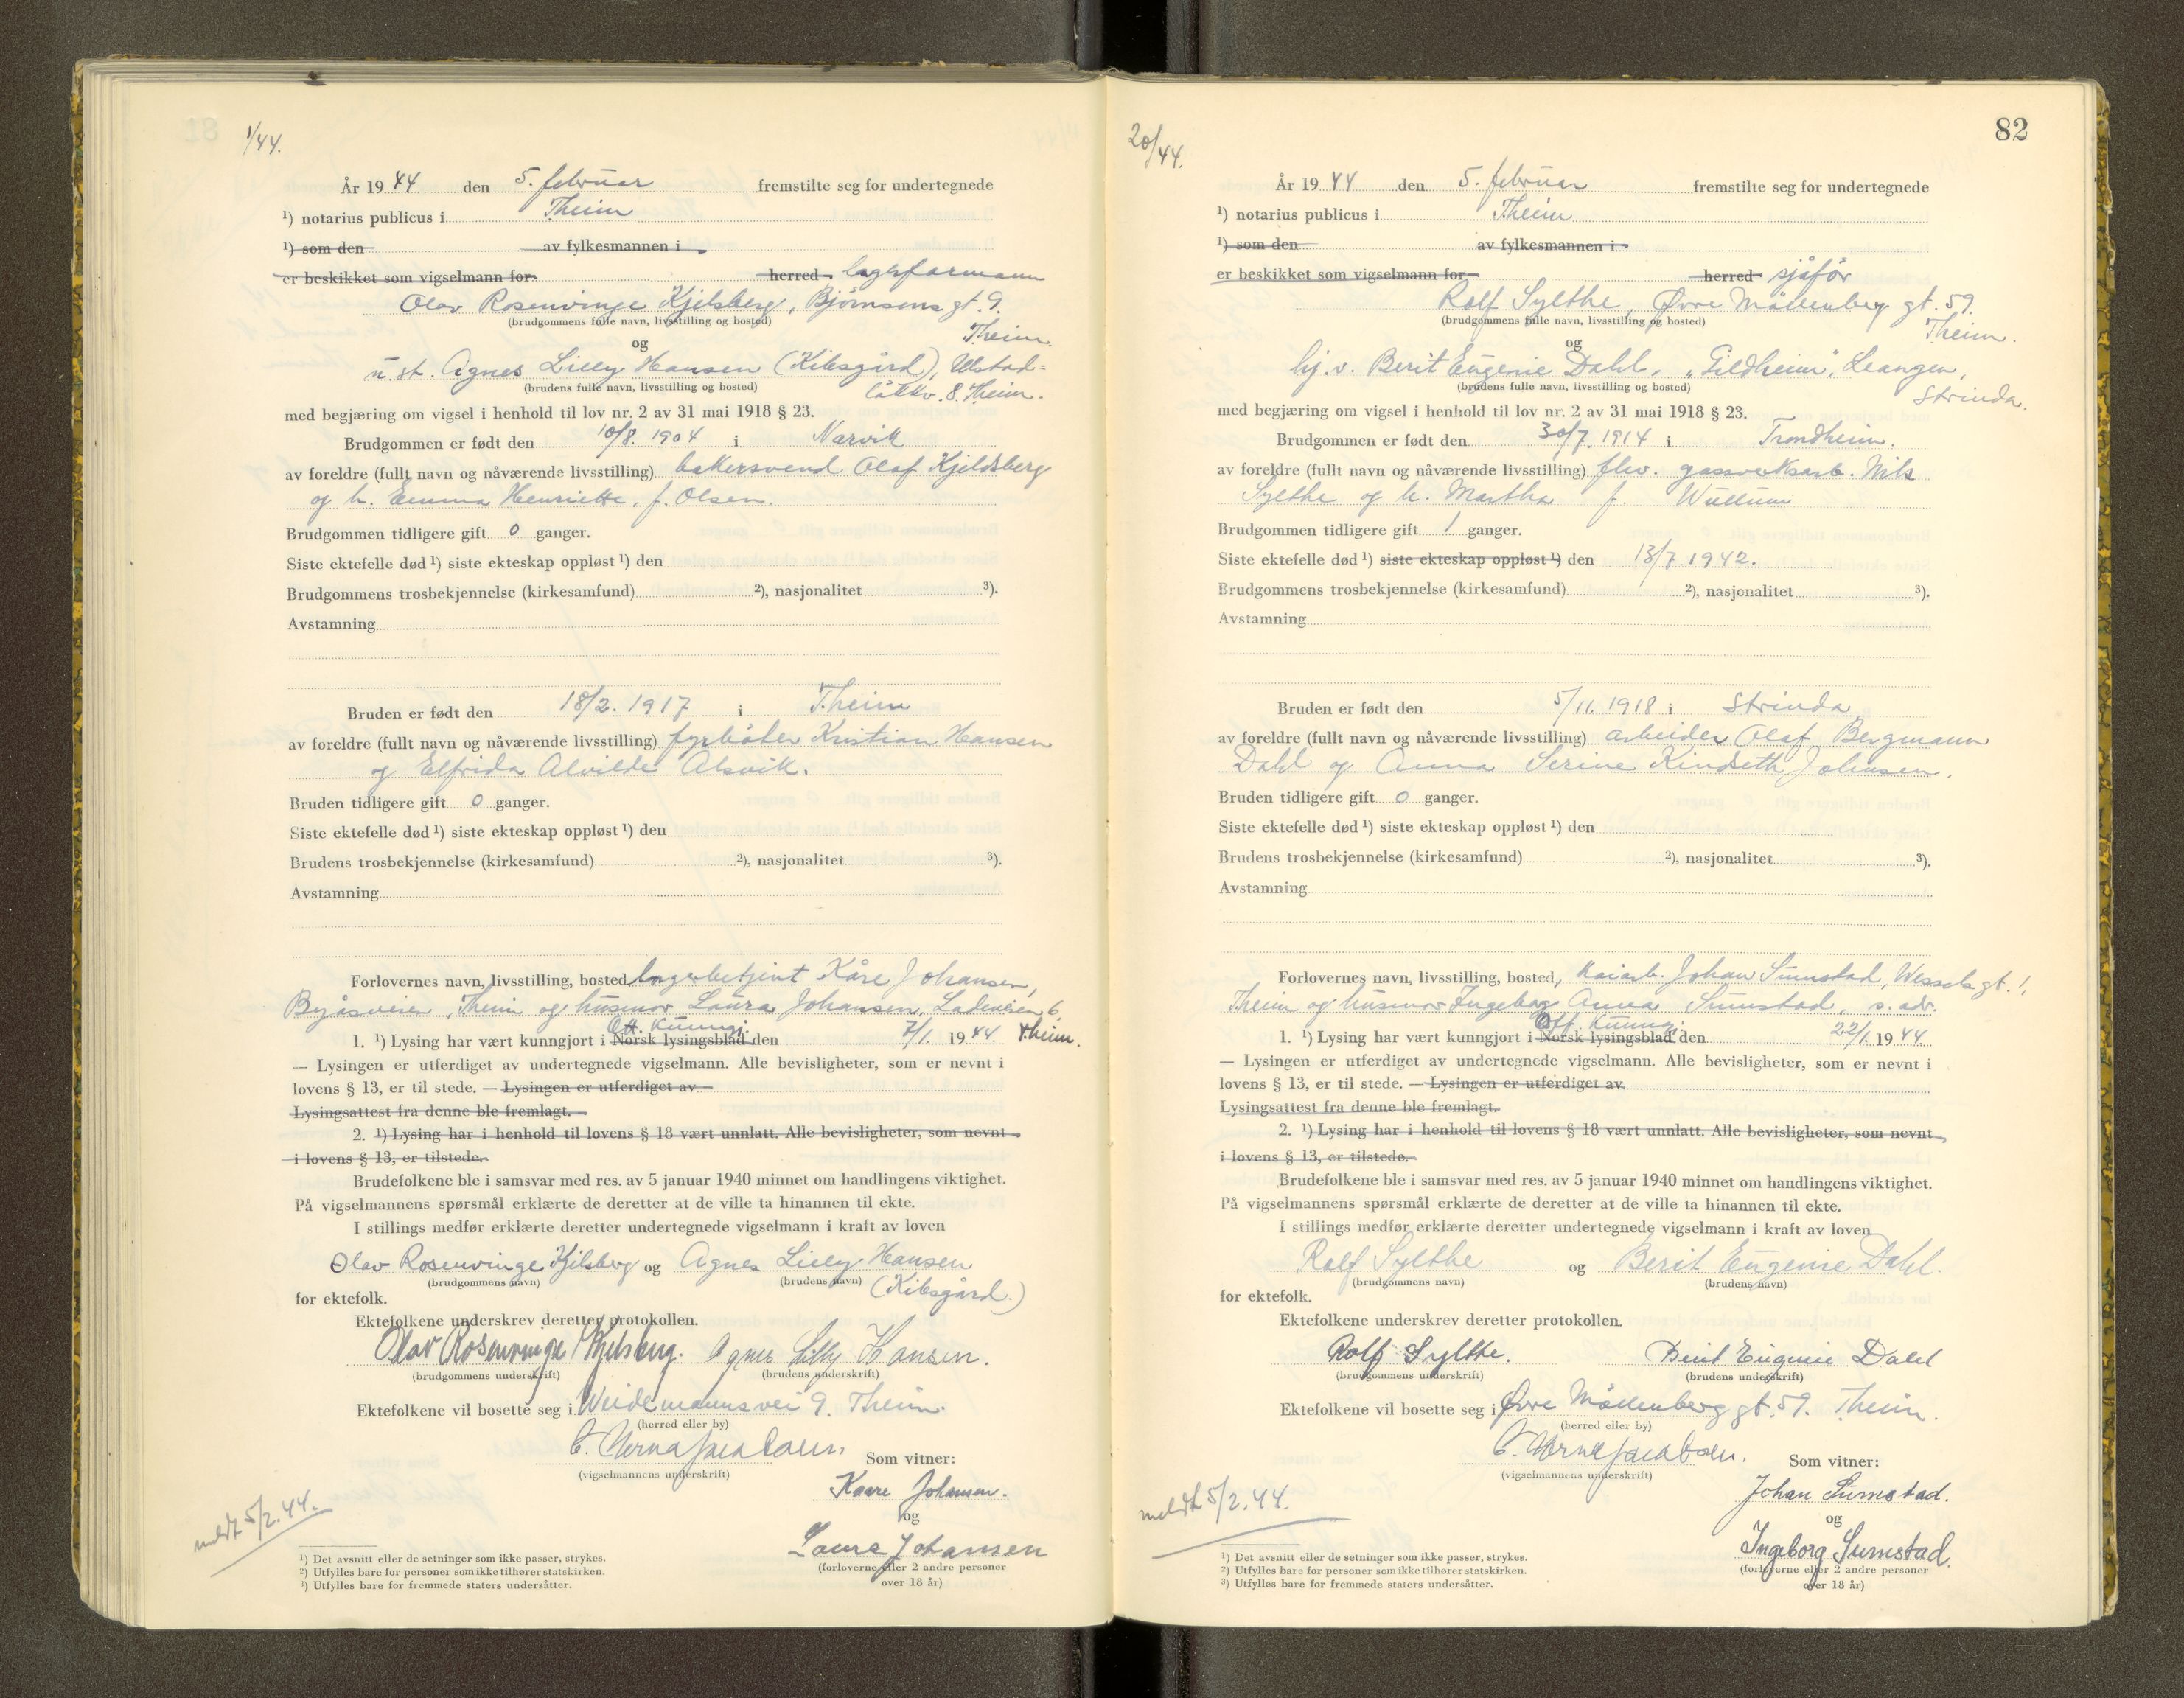 1/44.
År 1944 den 5. februar fremstilte seg for undertegnede
¹) notarius publicus i T.heim
¹) som den av fylkesmannen i
er beskikket som vigselmann for herred
Olav Rosenvinge Kjelsberg, Bjørnsons gt. 9.
(brudgommens fulle navn, livsstilling og bosted)
T.heim.
og
u. st. Agnes Lilly Hansen (Kibsgård), Ulstad-
(brudens fulle navn, livsstilling og bosted) løkkv. 8. T.heim.
med begjæring om vigsel i henhold til lov nr. 2 av 31 mai 1918 § 23.
Brudgommen er født den 10/8. 1904 i Narvik
av foreldre (fullt navn og nåværende livsstilling) bakersvend Olaf Kjeldsberg
og h. Emma Henriette, f. Olsen.
Brudgommen tidligere gift 0 ganger.
Siste ektefelle død ¹) siste ekteskap oppløst ¹) den
Brudgommens trosbekjennelse (kirkesamfund) ²), nasjonalitet ³).
Avstamning
Bruden er født den 18/2. 1917 i T.heim
av foreldre (fullt navn og nåværende livsstilling) fyrbøter Kristian Hansen
og Elfrida Alvilde Alsvik.
Bruden tidligere gift 0 ganger.
Siste ektefelle død ¹) siste ekteskap oppløst ¹) den
Brudens trosbekjennelse (kirkesamfund) ²), nasjonalitet ³).
Avstamning
Forlovernes navn, livsstilling, bosted lagerbetjent Kåre Johansen,
Byåsveien, T.heim og husmor Laura Johansen, Ladeveien 6,
Off. kunngj.
1. ¹) Lysing har vært kunngjort i Norsk lysingsblad den 7/1. 1944. T.heim.
— Lysingen er utferdiget av undertegnede vigselmann. Alle bevisligheter, som er nevnt i
lovens § 13, er til stede. — Lysingen er utferdiget av
Lysingsattest fra denne ble fremlagt.
2. ¹) Lysing har i henhold til lovens § 18 vært unnlatt. Alle bevisligheter, som nevnt
i lovens § 13, er tilstede.
Brudefolkene ble i samsvar med res. av 5 januar 1940 minnet om handlingens viktighet.
På vigselmannens spørsmål erklærte de deretter at de ville ta hinannen til ekte.
I stillings medfør erklærte deretter undertegnede vigselmann i kraft av loven
Olav Rosenvinge Kjelsberg og Agnes Lilly Hansen
(brudgommens navn) (brudens navn) (Kibsgård.)
for ektefolk.
Ektefolkene underskrev deretter protokollen.
Olav Rosenvinge Kjelsberg. Agnes Lilly Hansen.
(brudgommens underskrift) (brudens underskrift)
Ektefolkene vil bosette seg i Weidemannsvei 9. T.heim.
(herred eller by)
(vigselmannens underskrift) Som vitner:
Kaare Johansen.
og
Laura Johansen
(forloverne eller 2 andre personer
over 18 år)
meldt 5/2. 44.
¹) Det avsnitt eller de setninger som ikke passer, strykes.
²) Utfylles bare for personer som ikke tilhører statskirken.
³) Utfylles bare for fremmede staters undersåtter.
82
20/44.
År 1944 den 5. februar fremstilte seg for undertegnede
¹) notarius publicus i T.heim
¹) som den av fylkesmannen i
er beskikket som vigselmann for herred sjåfør
Rolf Sylthe, Øvre Møllenberg gt. 59.
(brudgommens fulle navn, livsstilling og bosted)
T.heim.
og
hj. v. Berit Eugenie Dahl, "Gildheim", Leangen,
(brudens fulle navn, livsstilling og bosted)
Strinda.
med begjæring om vigsel i henhold til lov nr. 2 av 31 mai 1918 § 23.
Brudgommen er født den 30/7. 1914 i Trondheim.
av foreldre (fullt navn og nåværende livsstilling) flev. gassverksarb. Nils
Sylthe og h. Martha f. Wullum
Brudgommen tidligere gift 1 ganger.
Siste ektefelle død ¹) siste ekteskap oppløst ¹) den 13/7 1942.
Brudgommens trosbekjennelse (kirkesamfund) ²), nasjonalitet ³).
Avstamning
Bruden er født den 5/11. 1918 i Strinda
av foreldre (fullt navn og nåværende livsstilling) arbeider Olaf Bergmann
Dahl og Anna Serine Kindseth Johnsen.
Bruden tidligere gift 0 ganger.
Siste ektefelle død ¹) siste ekteskap oppløst ¹) den
Brudens trosbekjennelse (kirkesamfund) ²), nasjonalitet ³).
Avstamning
Forlovernes navn, livsstilling, bosted, kaiarb. Johan Sumstad, Wessels gt. 1,
T.heim og husmor Ingeborg Anna Sumstad, s. adr.
Off. kunngj.
1. ¹) Lysing har vært kunngjort i Norsk lysingsblad den 22/1. 1944.
— Lysingen er utferdiget av undertegnede vigselmann. Alle bevisligheter, som er nevnt i
lovens § 13, er til stede. — Lysingen er utferdiget av
Lysingsattest fra denne ble fremlagt.
2. ¹) Lysing har i henhold til lovens § 18 vært unnlatt. Alle bevisligheter, som nevnt
i lovens § 13, er tilstede.
Brudefolkene ble i samsvar med res. av 5 januar 1940 minnet om handlingens viktighet.
På vigselmannens spørsmål erklærte de deretter at de ville ta hinannen til ekte.
I stillings medfør erklærte deretter undertegnede vigselmann i kraft av loven
Rolf Sylthe og Berit Eugenie Dahl.
(brudgommens navn) (brudens navn)
for ektefolk.
Ektefolkene underskrev deretter protokollen.
Rolf Sylthe. Berit Eugenie Dahl
(brudgommens underskrift) (brudens underskrift)
Ektefolkene vil bosette seg i Øvre Møllenberg gt. 59. T.heim.
(herred eller by)
(vigselmannens underskrift) Som vitner:
Johan Sumstad.
og
Ingeborg Sumstad.
(forloverne eller 2 andre personer
over 18 år)
meldt 5/2. 44.
¹) Det avsnitt eller de setninger som ikke passer, strykes.
²) Utfylles bare for personer som ikke tilhører statskirken.
³) Utfylles bare for fremmede staters undersåtter.